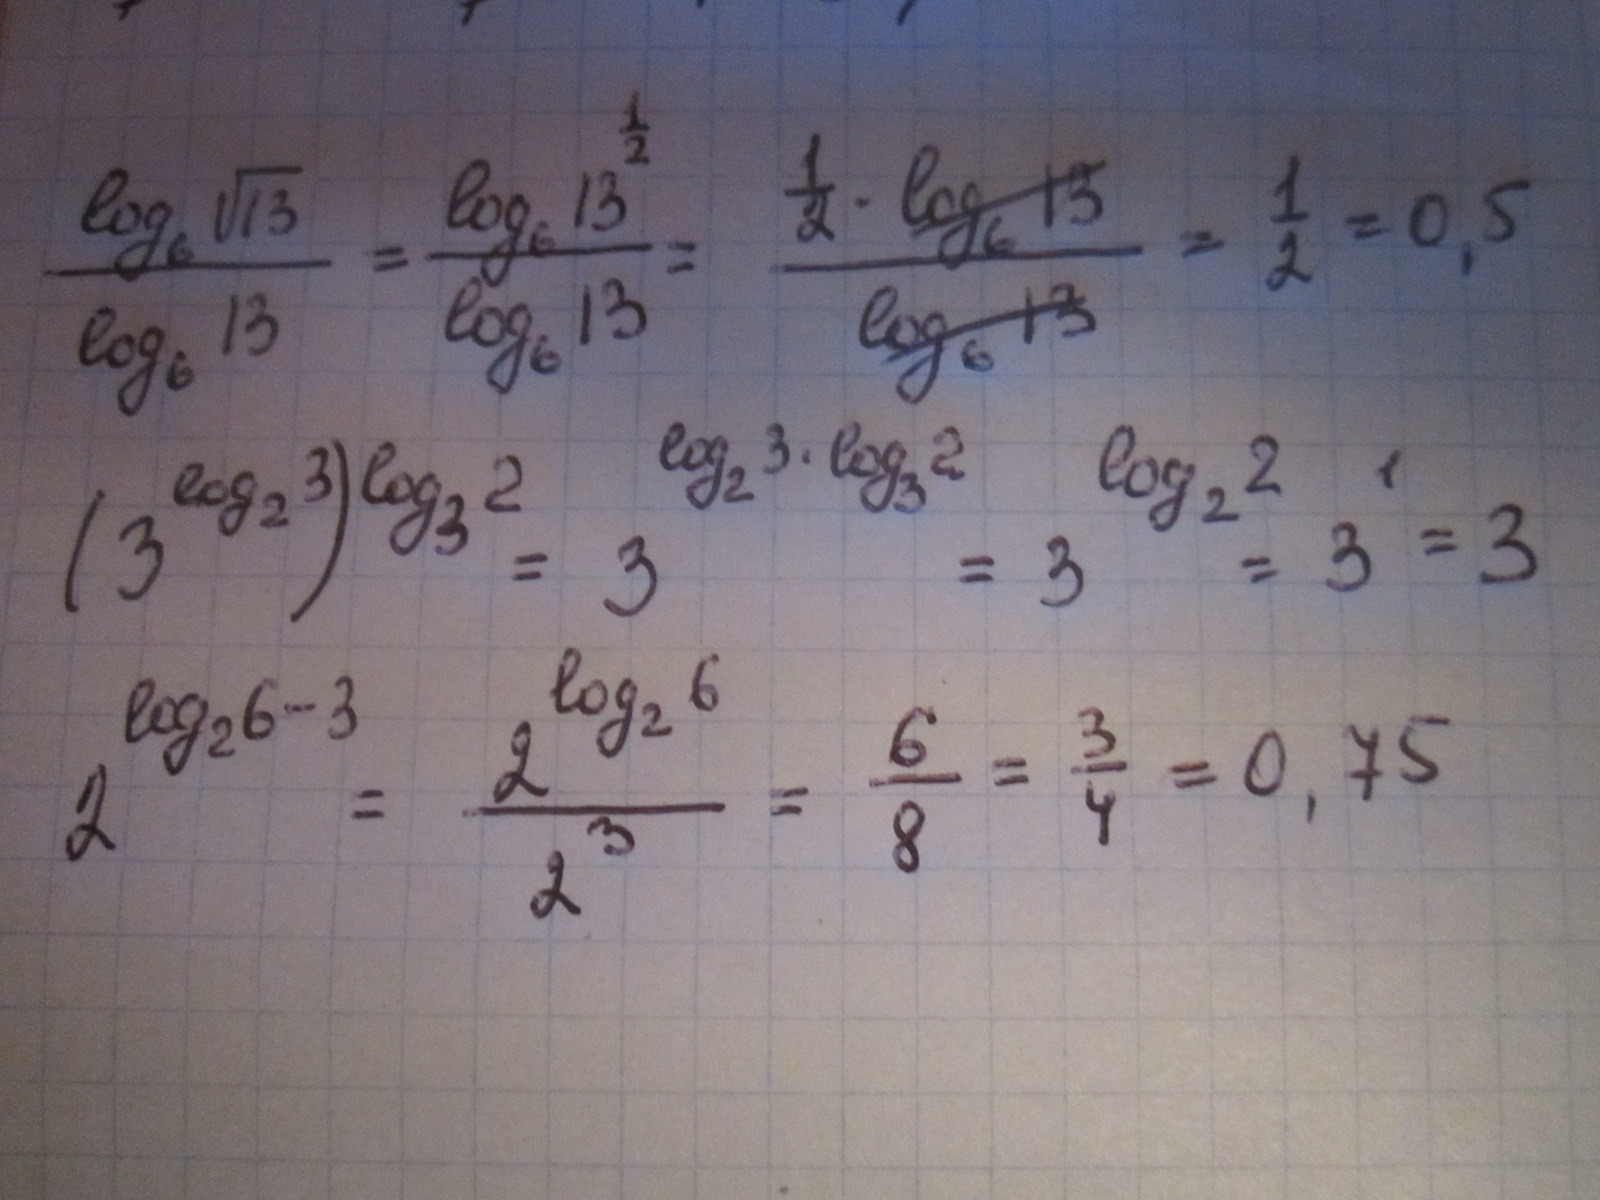 log₆ √13 / log₆ 13 = log₆ 13^(1/2) / log₆ 13 = 1/2 · log₆ 13 / log₆ 13 = 1/2 = 0,5
(3^(log₂ 3))^(log₃ 2) = 3^(log₂ 3 · log₃ 2) = 3^(log₂ 2) = 3^1 = 3
2^(log₂ 6 - 3) = 2^(log₂ 6) / 2^3 = 6/8 = 3/4 = 0,75